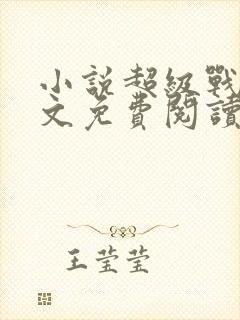 小說超級戰
文免費閱讀
王莹莹